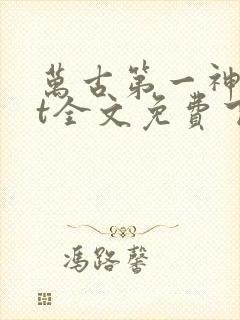 萬古第一神
t全文免費
馮路馨